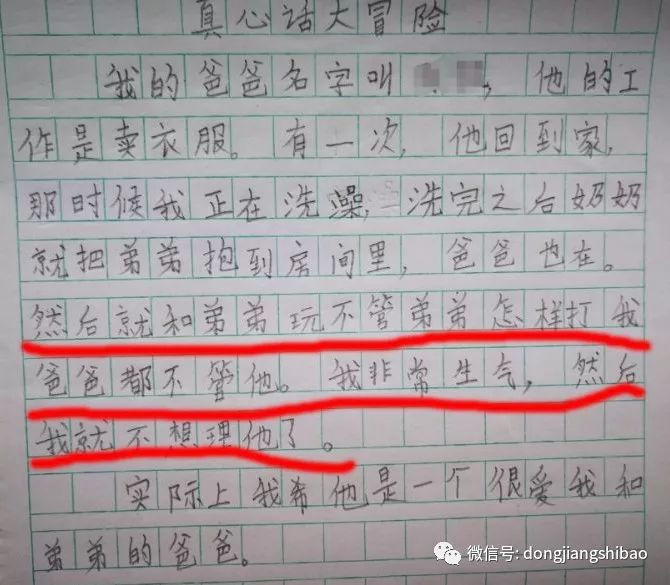 真心话大冒险
我的爸爸名字叫 ，他的工
作是卖衣服。有一次，他回到家，
那时候我正在洗澡，洗完之后奶奶
就把弟弟抱到房间里，爸爸也在。
然后就和弟弟玩不管弟弟怎样打我
爸爸都不管他。我非常生气，然后
我就不想理他了。
实际上我希他是一个很爱我和
弟弟的爸爸。
微信号: dongjiangshibao